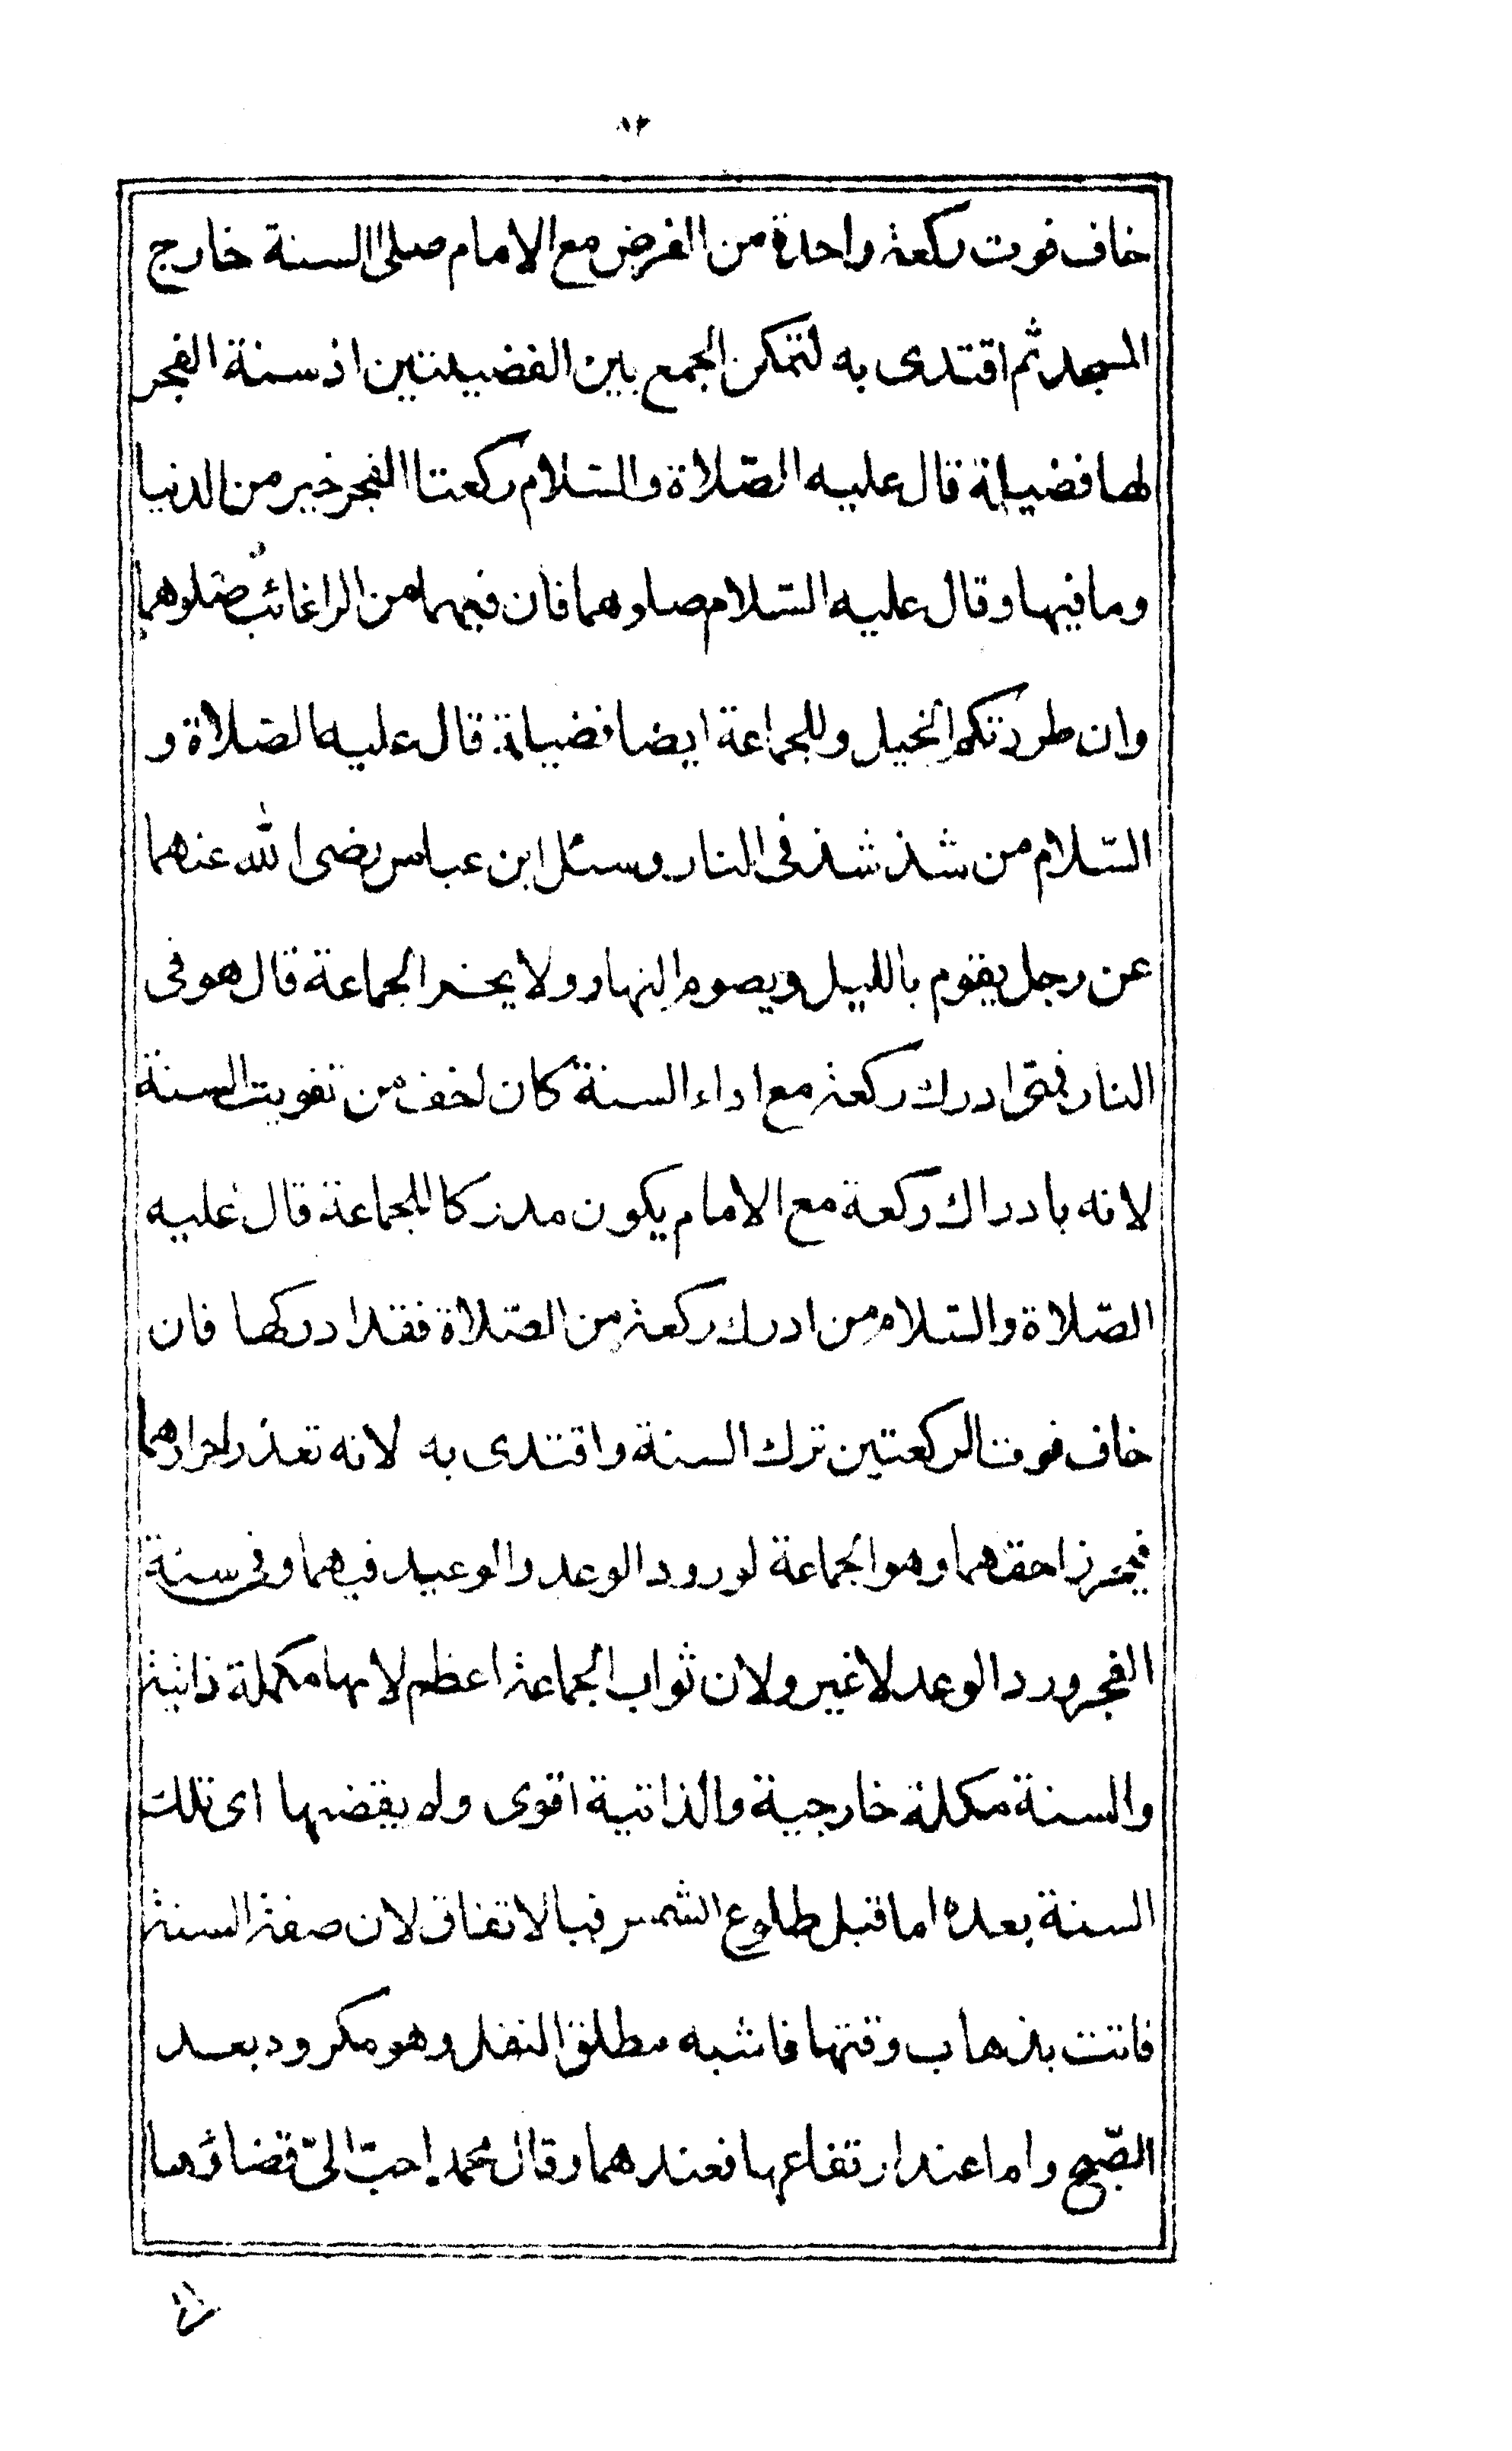 خاف فوت ركعة واحدة من الفرض مع الامام صلى السنة خارج
المسجد ثم اقتدى به لتمكن الجمع بين الفضيلتين اذ سنة الفجر
لها فضيلة قال عليه الصّلاة والسّلام ركعتا الفجر خير من الدنيا
وما فيها وقال عليه السّلام صلوهما فان فيهما من الراغائب صلوهما
وان طردتكم الخيل وللجماعة ايضا فضيلة قال عليه الصّلاة و
السّلام من شذ شذ فى النار وسئل ابن عباس رضى الله عنهما
عن رجل يقوم بالليل ويصوم النهار ولا يحضر الجماعة قال هو فى
النار فمتى ادرك ركعة مع اداء السنة كان اخف من تفويت السنة
لانه بادراك ركعة مع الامام يكون مدركا للجماعة قال عليه
الصّلاة والسّلام من ادرك ركعة من الصّلاة فقد ادركها فان
خاف فوت الركعتين ترك السنة واقتدى به لانه تعذر احرازهما
فيحرز احقهما وهو الجماعة لورود الوعد والوعيد فيهما وفى سنة
الفجر ورد الوعد لا غير ولان ثواب الجماعة اعظم لانها مكملة ذاتية
والسنة مكملة خارجية والذاتية اقوى ولم يقضها اى تلك
السنة بعده اما قبل طلوع الشمس فبالاتفاق لان صفة السنة
فاتت بذهاب وقتها فاشبه مطلق النفل وهو مكروه بعد
الصّبح واما عند ارتفاعها فعندهما وقال محمد احبّ الىّ قضاؤها